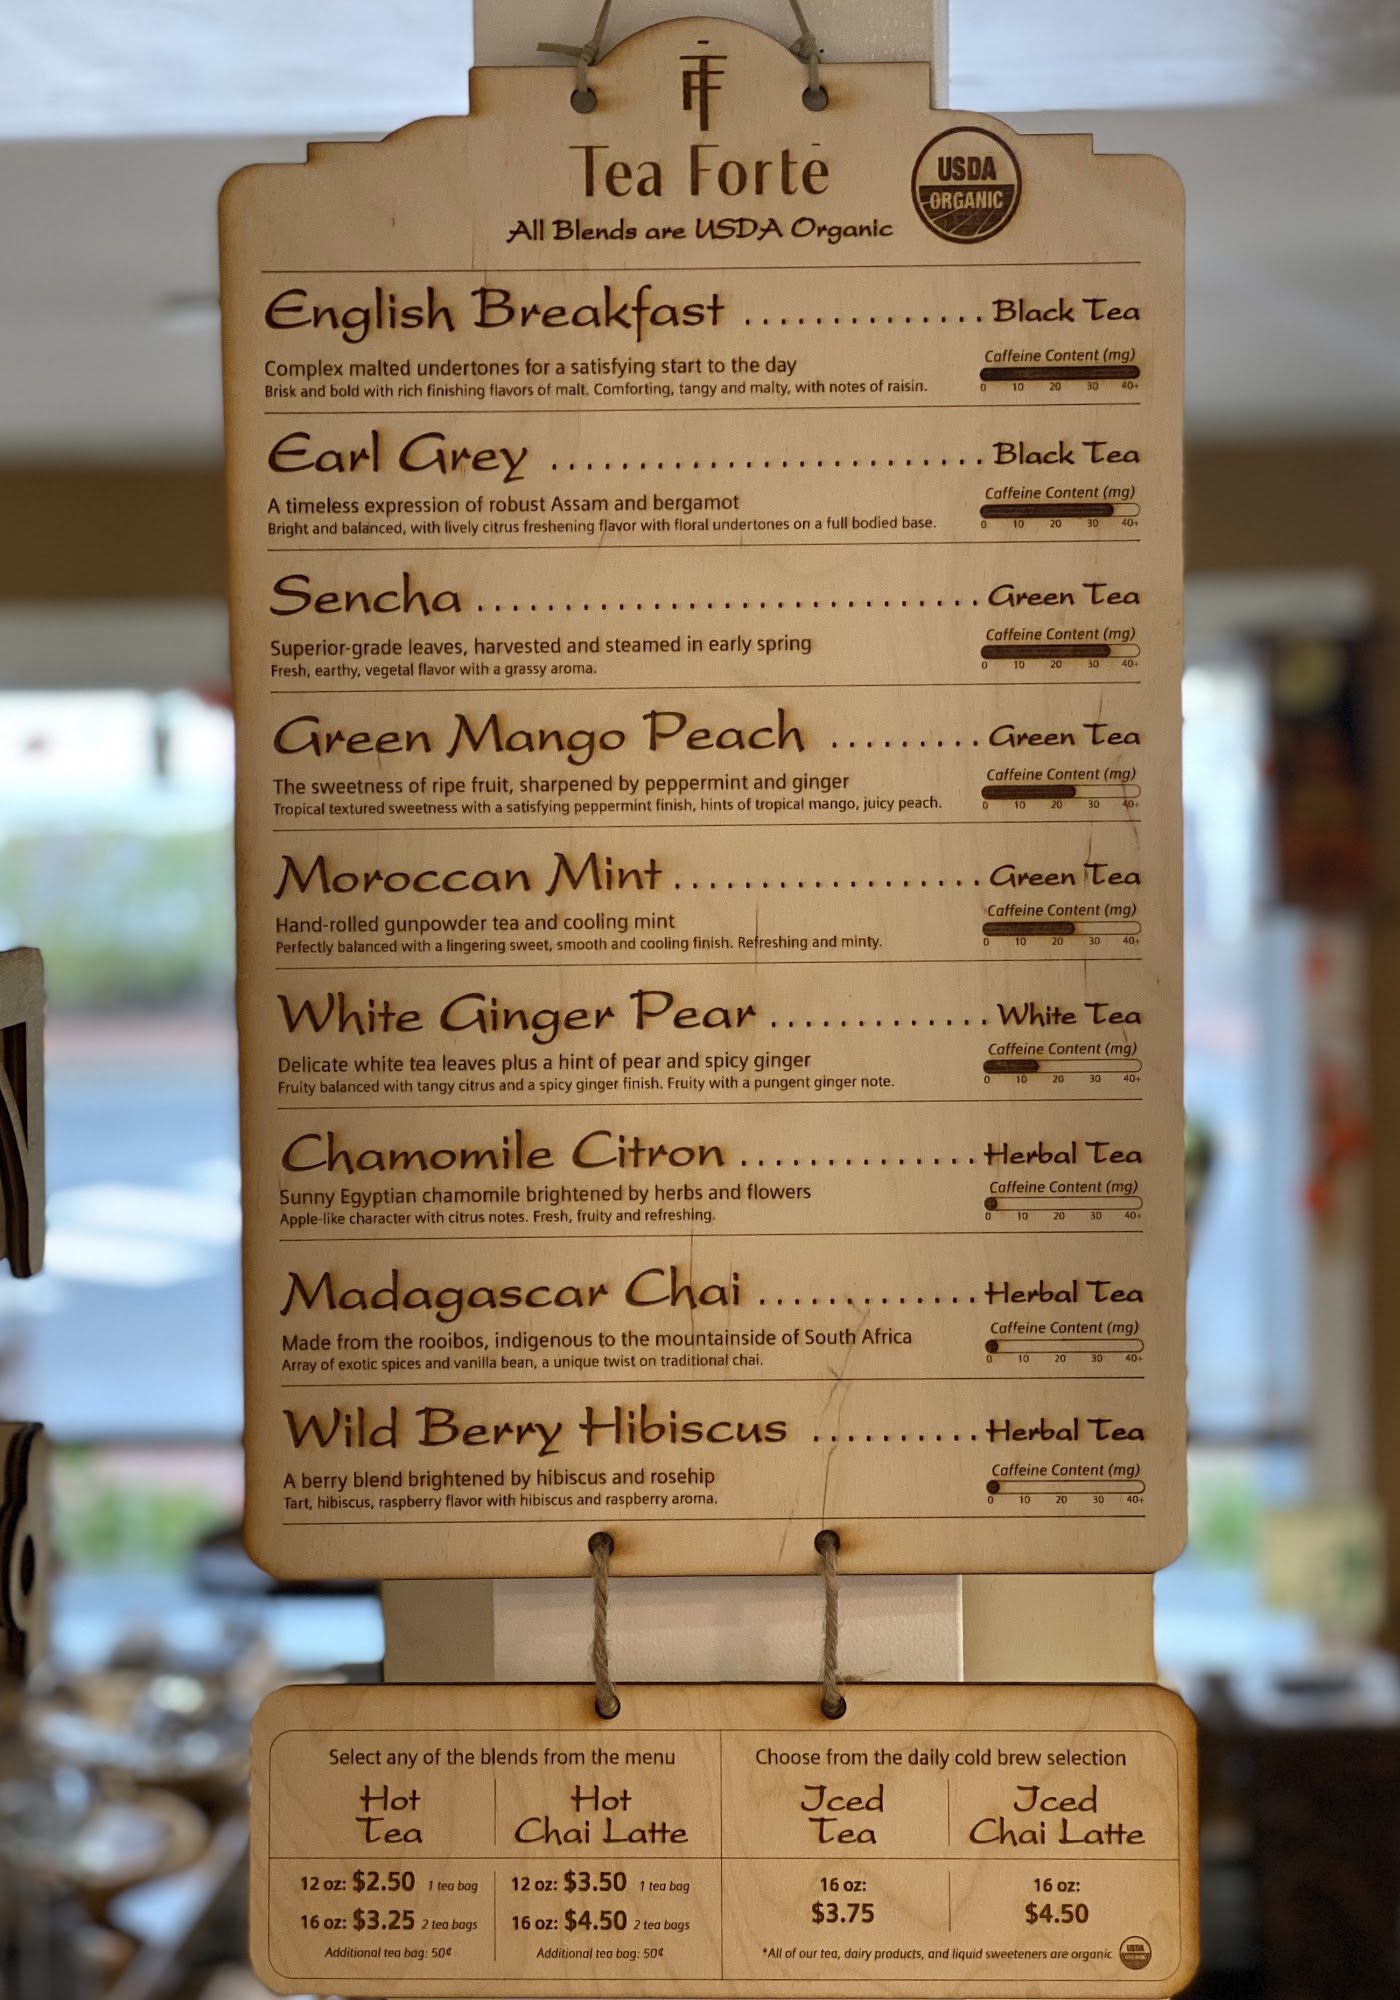 Tea Forté
All Blends are USDA Organic
USDA
ORGANIC
English Breakfast .............. Black Tea
Complex malted undertones for a satisfying start to the day
Brisk and bold with rich finishing flavors of malt. Comforting, tangy and malty, with notes of raisin.
Caffeine Content (mg)
0 10 20 30 40+
Earl Grey ......................... Black Tea
A timeless expression of robust Assam and bergamot
Bright and balanced, with lively citrus freshening flavor with floral undertones on a full bodied base.
Caffeine Content (mg)
0 10 20 30 40+
Sencha ............................ Green Tea
Superior-grade leaves, harvested and steamed in early spring
Fresh, earthy, vegetal flavor with a grassy aroma.
Caffeine Content (mg)
0 10 20 30 40+
Green Mango Peach ......... Green Tea
The sweetness of ripe fruit, sharpened by peppermint and ginger
Tropical textured sweetness with a satisfying peppermint finish, hints of tropical mango, juicy peach.
Caffeine Content (mg)
0 10 20 30 40+
Moroccan Mint .................. Green Tea
Hand-rolled gunpowder tea and cooling mint
Perfectly balanced with a lingering sweet, smooth and cooling finish. Refreshing and minty.
Caffeine Content (mg)
0 10 20 30 40+
White Ginger Pear ............. White Tea
Delicate white tea leaves plus a hint of pear and spicy ginger
Fruity balanced with tangy citrus and a spicy ginger finish. Fruity with a pungent ginger note.
Caffeine Content (mg)
0 10 20 30 40+
Chamomile Citron .............. Herbal Tea
Sunny Egyptian chamomile brightened by herbs and flowers
Apple-like character with citrus notes. Fresh, fruity and refreshing.
Caffeine Content (mg)
0 10 20 30 40+
Madagascar Chai ............. Herbal Tea
Made from the rooibos, indigenous to the mountainside of South Africa
Array of exotic spices and vanilla bean, a unique twist on traditional chai.
Caffeine Content (mg)
0 10 20 30 40+
Wild Berry Hibiscus .......... Herbal Tea
A berry blend brightened by hibiscus and rosehip
Tart, hibiscus, raspberry flavor with hibiscus and raspberry aroma.
Caffeine Content (mg)
0 10 20 30 40+
Select any of the blends from the menu
Hot
Tea
12 oz: $2.50 1 tea bag
16 oz: $3.25 2 tea bags
Additional tea bag: 50¢
Hot
Chai Latte
12 oz: $3.50 1 tea bag
16 oz: $4.50 2 tea bags
Additional tea bag: 50¢
Choose from the daily cold brew selection
Iced
Tea
16 oz:
$3.75
Iced
Chai Latte
16 oz:
$4.50
*All of our tea, dairy products, and liquid sweeteners are organic
USDA
ORGANIC